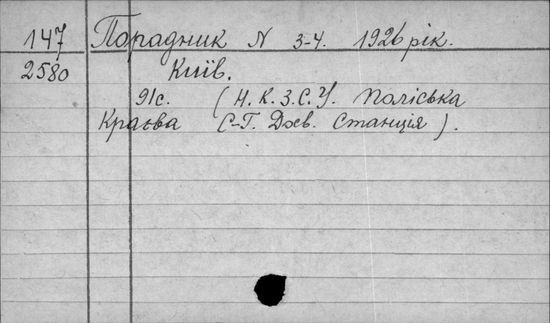 147 Порадник N 3-4. 1926 рік.
2580 Київ.
91с. (Н. К. З. С. У. Поліська
Краєва С-Г. Досв. Станція).